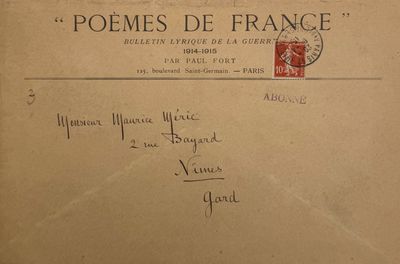 “ POÈMES DE FRANCE ”
BULLETIN LYRIQUE DE LA GUERRE
1914-1915
PAR PAUL FORT
125, boulevard Saint-Germain. — PARIS
10
ABONNÉ
3
Monsieur Maurice Méric
2 rue Bayard
Nîmes
Gard